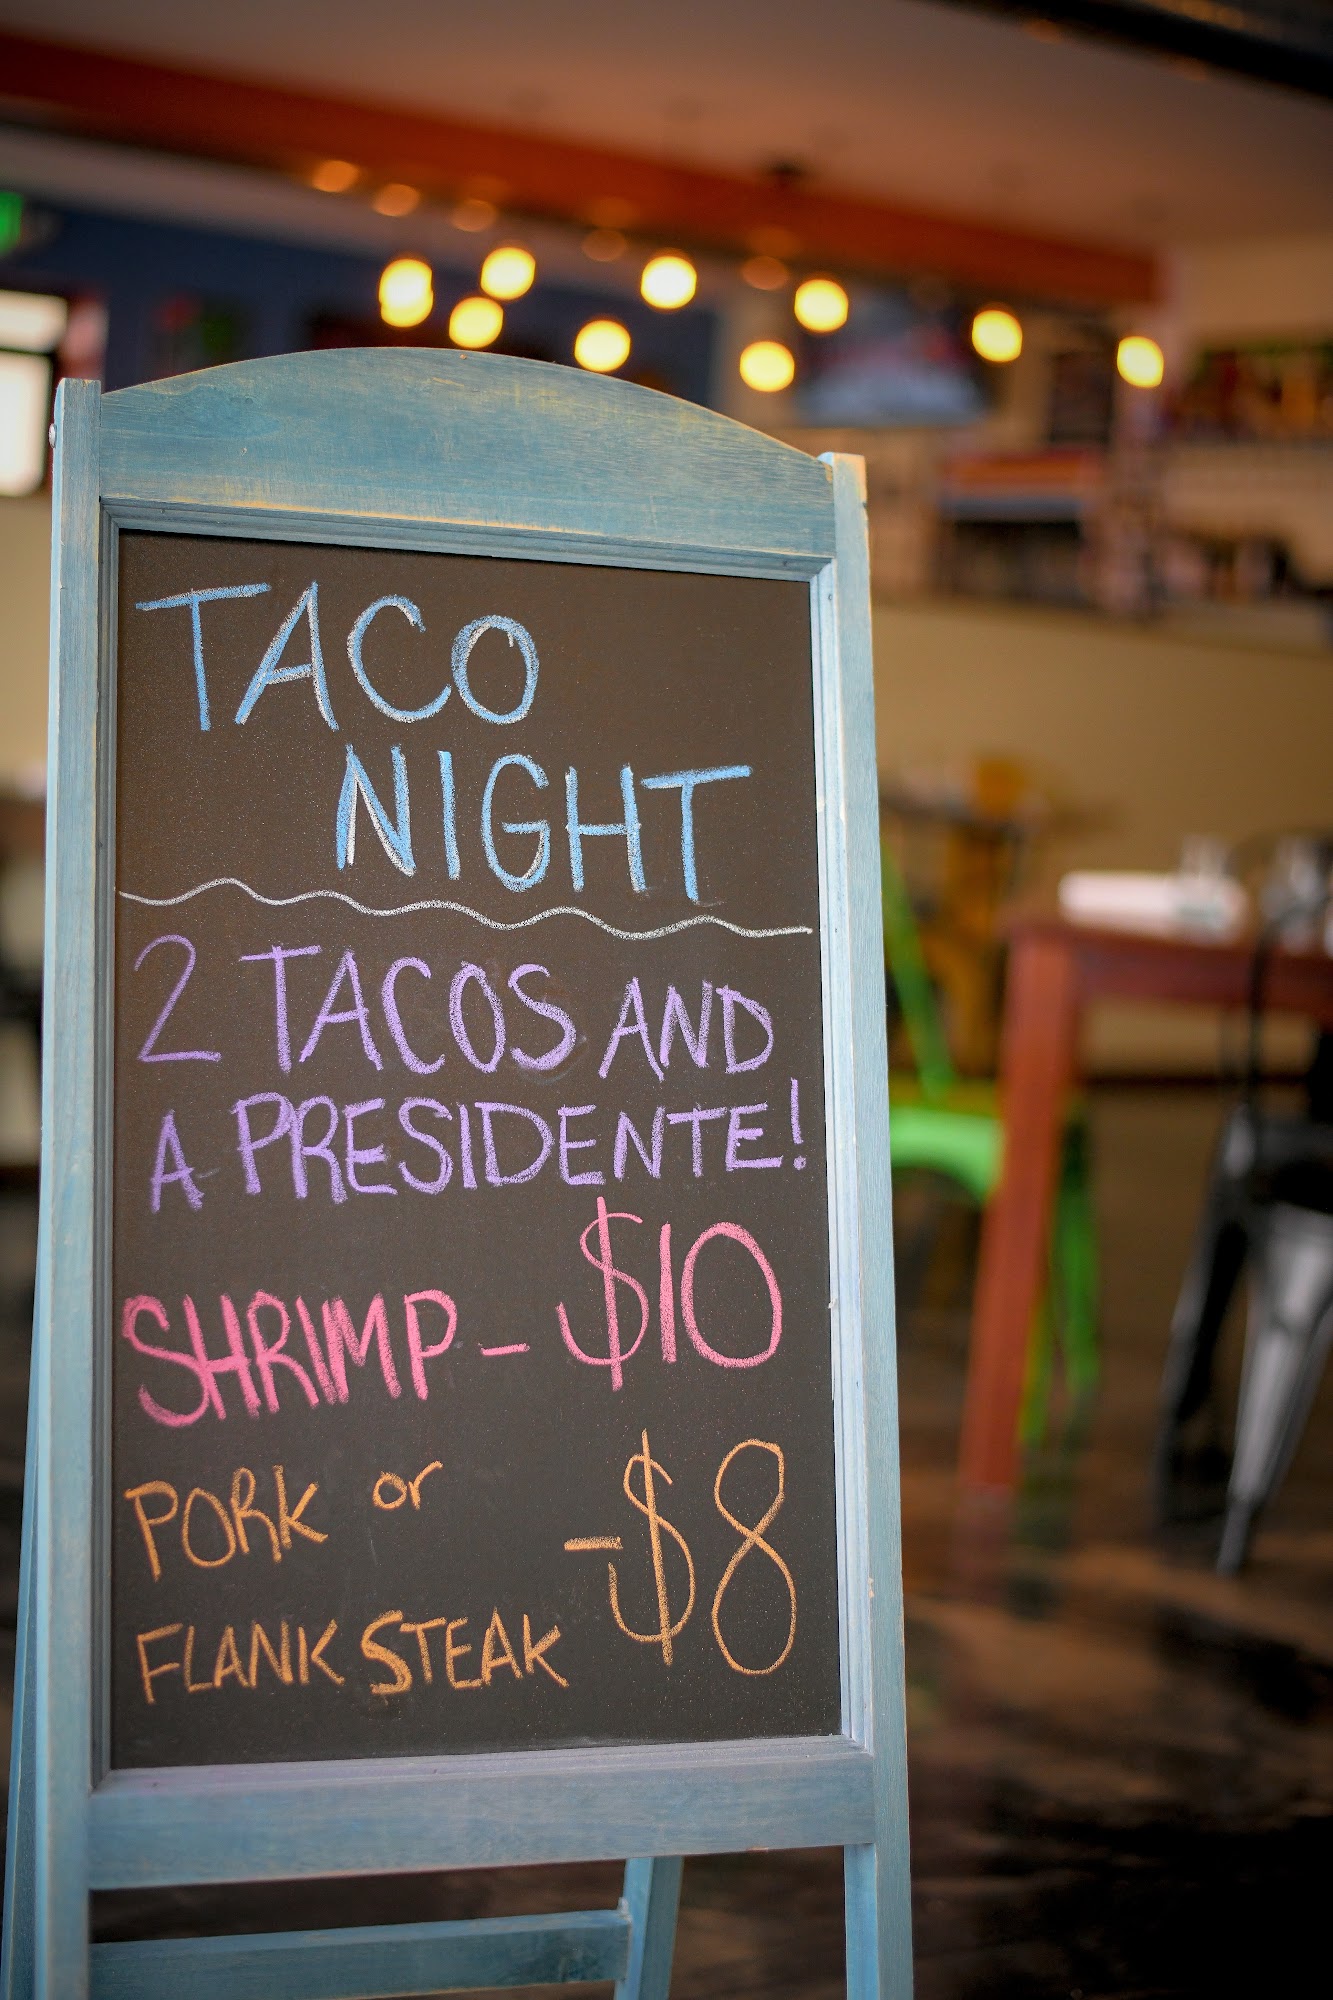 TACO
NIGHT
2 TACOS AND
A PRESIDENTE!
SHRIMP - $10
PORK or
FLANK STEAK - $8